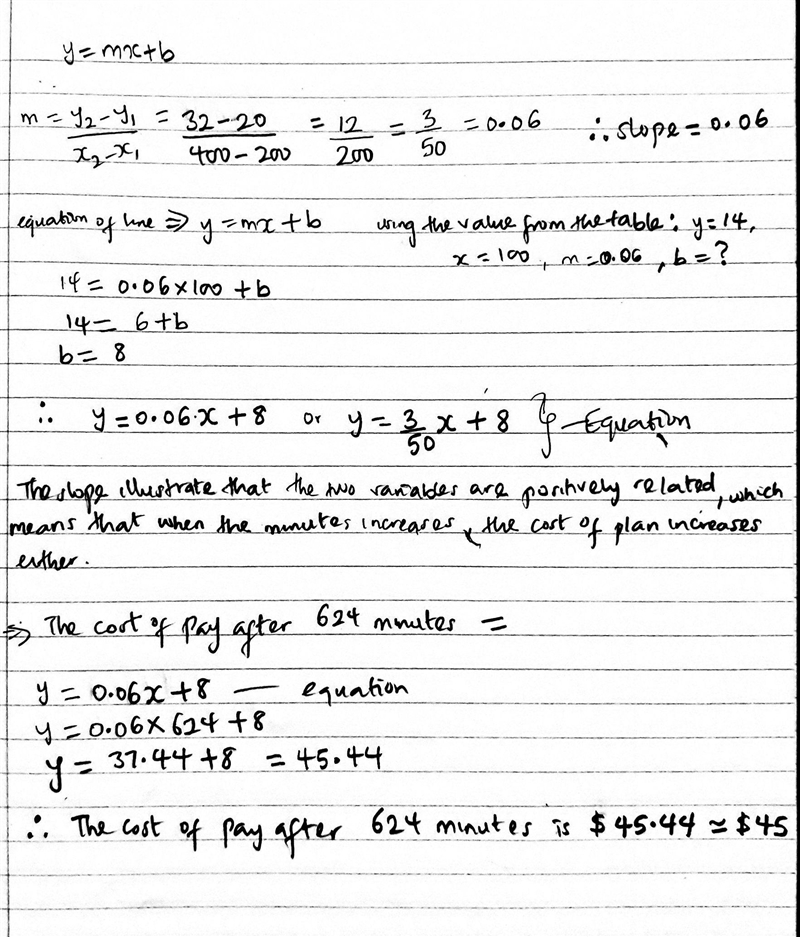 y = mx + b
m = y₂ - y₁ / x₂ - x₁ = 32 - 20 / 400 - 200 = 12 / 200 = 3 / 50 = 0.06 ∴ slope = 0.06
equation of line ⇒ y = mx + b using the value from the table: y = 14,
x = 100, m = 0.06, b = ?
14 = 0.06 × 100 + b
14 = 6 + b
b = 8
∴ y = 0.06·x + 8 or y = 3/50 x + 8 } — Equation
The slope illustrate that the two variables are positively related, which
means that when the minutes increases, the cost of plan increases
either.
⇒ The cost of pay after 624 minutes =
y = 0.06x + 8 — equation
y = 0.06 × 624 + 8
y = 37.44 + 8 = 45.44
∴ The cost of pay after 624 minutes is $45.44 ≃ $45